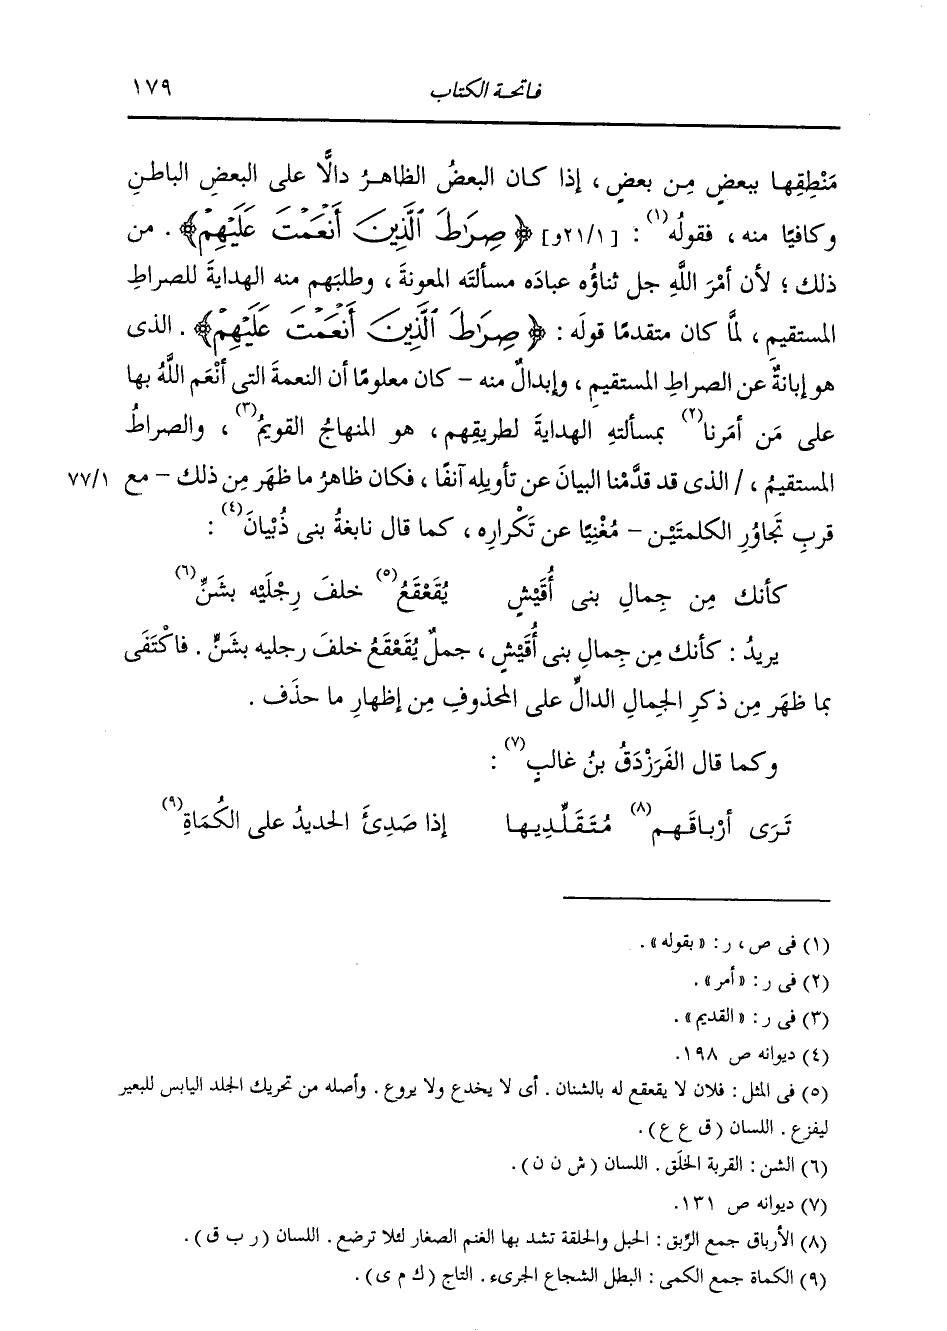 فاتحة الكتاب ١٧٩
مَنْطِقِها ببعضٍ مِن بعضٍ ، إذا كان البعضُ الظاهرُ دالًّا على البعضِ الباطنِ
وكافيًا منه ، فقولُه(١) : [٢١/١و] ﴿ صِرَٰطَ ٱلَّذِينَ أَنْعَمْتَ عَلَيْهِمْ﴾ . من
ذلك ؛ لأن أمْرَ اللَّهِ جل ثناؤُه عبادَه مسألتَه المعونةَ ، وطلبَهم منه الهدايةَ للصراطِ
المستقيمِ ، لمَّا كان متقدمًا قولَه : ﴿ صِرَٰطَ ٱلَّذِينَ أَنْعَمْتَ عَلَيْهِمْ﴾ . الذى
هو إبانةٌ عن الصراطِ المستقيمِ ، وإبدالٌ منه – كان معلومًا أن النعمةَ التى أنْعَم اللَّهُ بها
على مَن أمَرنا(٢) بمسألتهِ الهدايةَ لطريقِهم ، هو المنهاجُ القويمُ(٣) ، والصراطُ
المستقيمُ ، / الذى قد قدَّمْنا البيانَ عن تأويلِه آنفًا ، فكان ظاهرُ ما ظهَر مِن ذلك – مع ٧٧/١
قربِ تَجاوُرِ الكلمتَيْن – مُغْنِيًا عن تَكْرارِه ، كما قال نابغةُ بنى ذُبْيانَ(٤) :
كأنك مِن جِمالِ بنى أُقَيْشٍ يُقَعْقَعُ(٥) خلفَ رِجْلَيْه بشَنِّ(٦)
يريدُ : كأنك مِن جِمالِ بنى أُقَيْشٍ ، جملٌ يُقَعْقَعُ خلفَ رجليه بشَنٍّ . فاكْتَفَى
بما ظهَر مِن ذكرِ الجِمالِ الدالِّ على المحذوفِ مِن إظهارِ ما حذَف .
وكما قال الفَرَزْدَقُ بنُ غالبٍ(٧) :
تَرَى أرْباقَهم(٨) مُتَقَلِّدِيها إذا صَدِئَ الحديدُ على الكُمَاةِ(٩)
(١) فى ص ، ر : « بقوله » .
(٢) فى ر : « أمر » .
(٣) فى ر : « القديم » .
(٤) ديوانه ص ١٩٨.
(٥) فى المثل : فلان لا يقعقع له بالشنان . أى لا يخدع ولا يروع . وأصله من تحريك الجلد اليابس للبعير
ليفزع . اللسان ( ق ع ع ) .
(٦) الشن : القربة الخَلَق . اللسان ( ش ن ن ) .
(٧) ديوانه ص ١٣١.
(٨) الأرباق جمع الرِّبق : الحبل والحلقة تشد بها الغنم الصغار لئلا ترضع . اللسان ( ر ب ق ) .
(٩) الكماة جمع الكمى : البطل الشجاع الجرىء . التاج ( ك م ى ) .